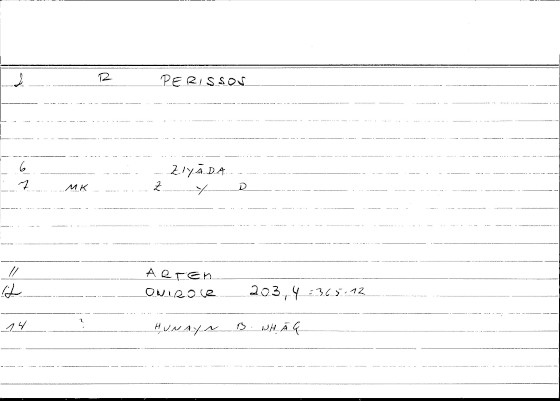 1 R PERISSOS
6 ZIYĀDA
7 MK Z Y D
11 ARTEM
12 ONIROCR 203,4 = 365.12
14 : HUNAYN B.